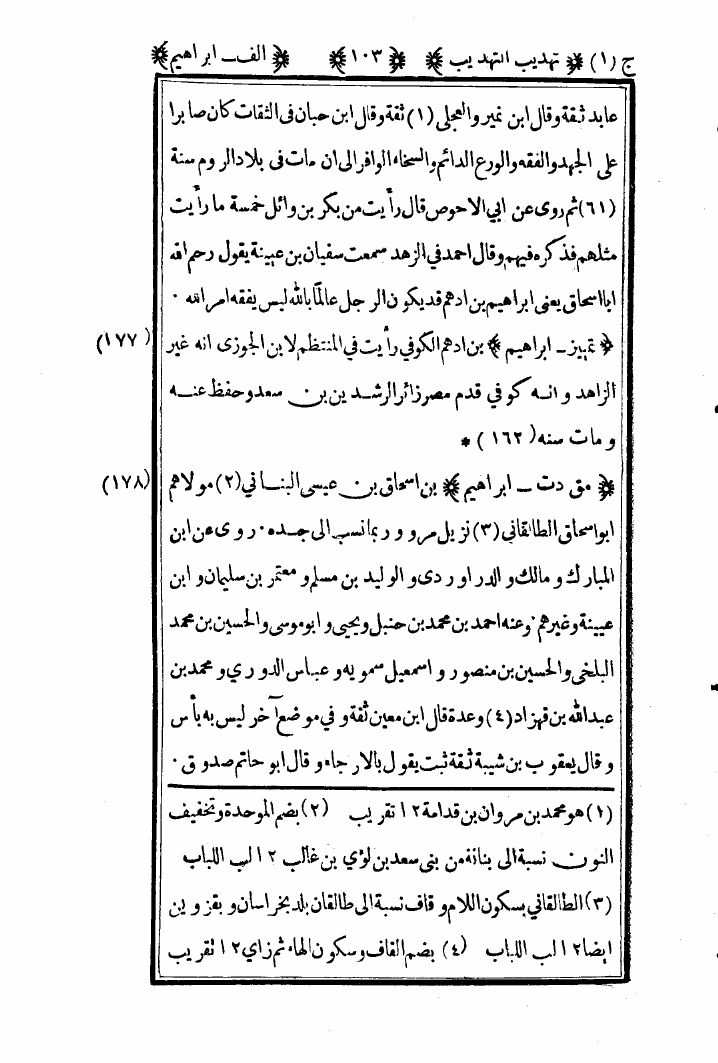 ج (١) ﴿ تهذيب التهذيب ﴾ ﴿ ١٠٣ ﴾ ﴿ الف ـ ابراهيم ﴾
عابد ثقة وقال ابن نمير والعجلى (١) ثقة وقال ابن حبان فى الثقات كان صابرا
على الجهد والفقه والورع الدائم والسخاء الوافر الى ان مات فى بلاد الروم سنة
(٦١) ثم روى عن ابي الاحوص قال رأيت من بكر بن وائل خمسة ما رأيت
مثلهم فذكره فيهم وقال احمد في الزهد سمعت سفيان بن عيينة يقول رحم الله
ابا اسحاق يعنى ابراهيم بن ادهم قد يكون الرجل عالماً بالله ليس يفقه امر الله ٠
﴿ تمييز ـ ابراهيم ﴾ بن ادهم الكوفي رأيت في المنتظم لابن الجوزى انه غير (١٧٧)
الزاهد وانه كوفي قدم مصر زائر الرشدين بن سعد وحفظ عنه
ومات سنه (١٦٢) *
﴿ مق دت ـ ابراهيم ﴾ بن اسحاق بن عيسى البناني (٢) مولاهم (١٧٨)
ابو اسحاق الطالقاني (٣) نزيل مرو وربما نسب الى جده ٠ روى عن ابن
المبارك ومالك والدراوردى والوليد بن مسلم ومعتمر بن سليمان وابن
عيينة وغيرهم ٠ وعنه احمد بن محمد بن حنبل ويحيى وابو موسى والحسين بن محمد
البلخى والحسين بن منصور واسمعيل سمويه وعباس الدوري ومحمد بن
عبدالله بن قهزاد (٤) وعدة قال ابن معين ثقة وفي موضع آخر ليس به بأس
وقال يعقوب بن شيبة ثقة ثبت يقول بالارجاء وقال ابو حاتم صدوق ٠
(١) هو محمد بن مروان بن قدامة ١٢ تقريب (٢) بضم الموحدة وتخفيف
النون نسبة الى بنانة من بنى سعد بن لؤي بن غالب ١٢ لب اللباب
(٣) الطالقاني بسكون اللام وقاف نسبة الى طالقان بلد بخراسان وبقزوين
ايضا ١٢ لب اللباب (٤) بضم القاف وسكون الهاء ثم زاي ١٢ تقريب